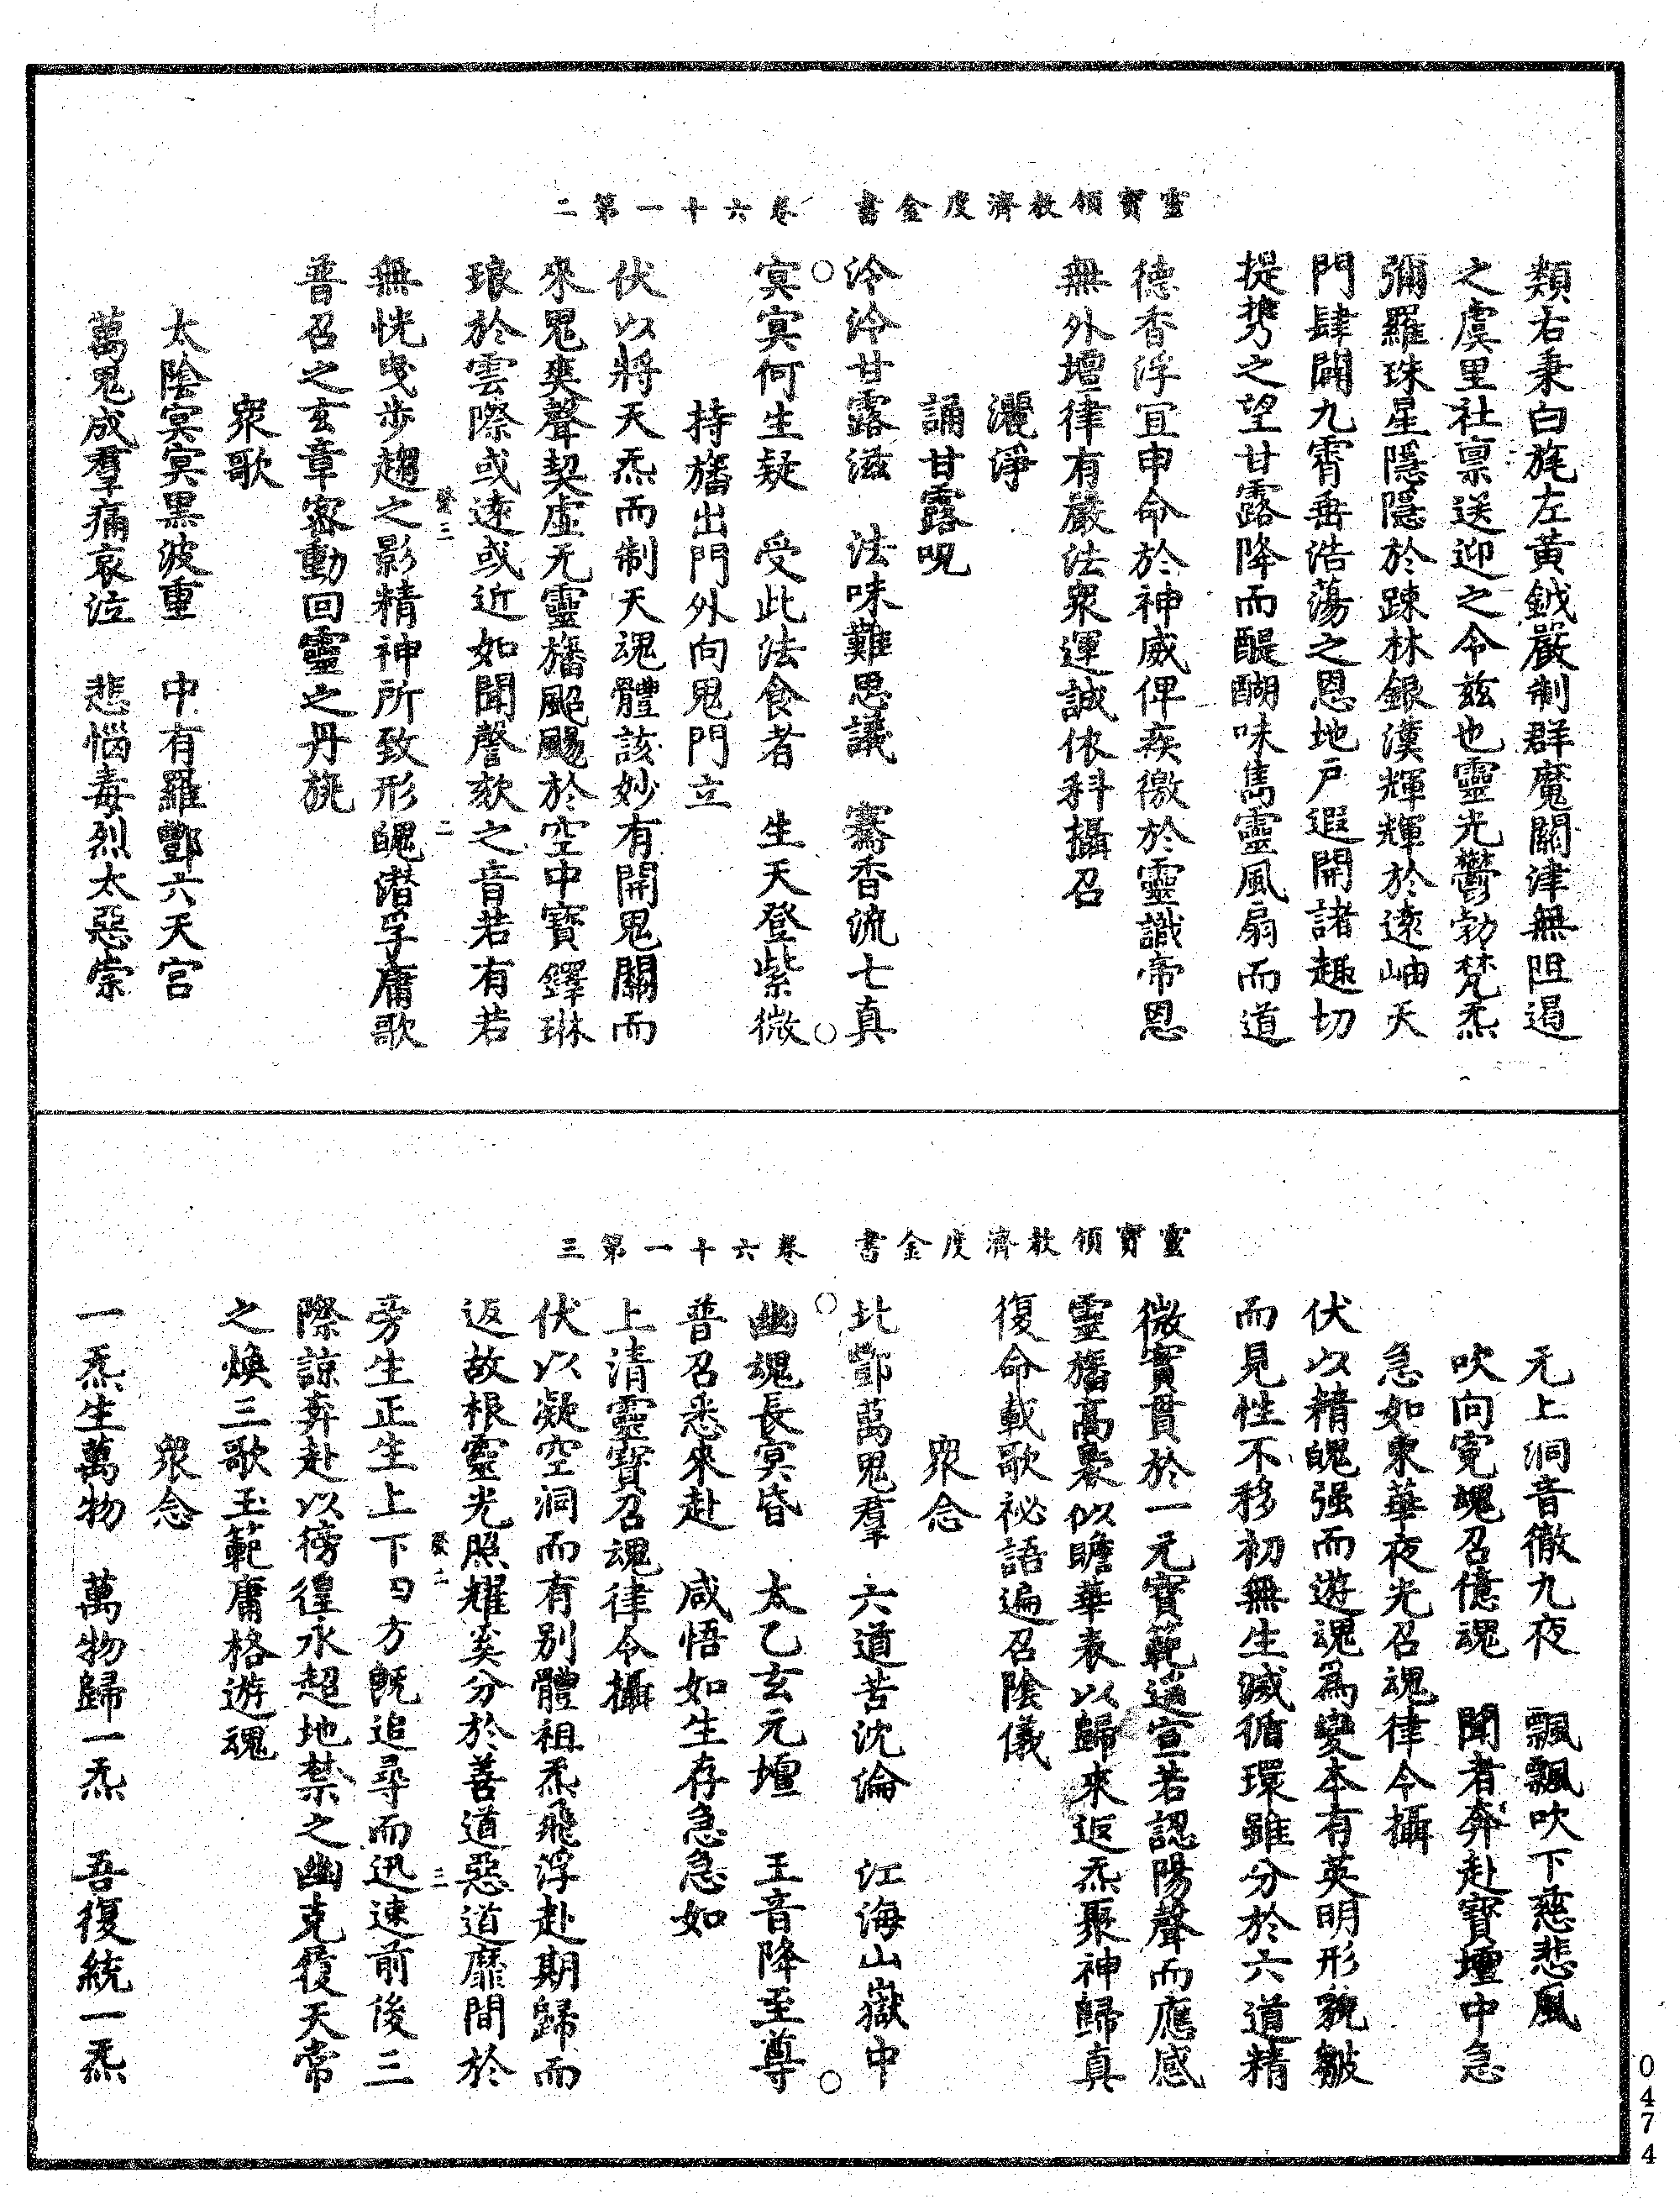 靈寶領教濟度金書　卷六十一第二
類右秉白旄左黃鉞嚴制群魔關津無阻遏
之虞里社禀送迎之令茲也靈光鬱勃梵炁
彌羅珠星隱隱於踈林銀漢輝輝於遠岫天
門肆闢九霄垂浩蕩之恩地戶遐開諸趣切
提携之望甘露降而醍醐味雋靈風扇而道
德香浮宜申命於神威俾疾徼於靈識帝恩
無外壇律有嚴法衆運誠依科攝召
灑淨
誦甘露呪
泠泠甘露滋　法味難思議　騫香流七真
冥冥何生疑　受此法食者　生天登紫微
持旛出門外向鬼門立
伏以將天炁而制天魂體該妙有開鬼關而
來鬼爽聲契虛无靈旛颭颺於空中寶鐸琳
琅於雲際或遠或近如聞謦欬之音若有若
無恍曳步趨之影精神所致形魄潛孚庸歌
普召之玄章密動回靈之丹旐
衆歌
太陰冥冥黑波重　中有羅酆六天宮
萬鬼成羣痛哀泣　悲惱毒烈太惡崇
二
靈寶領教濟度金書　卷六十一第三
无上洞音徹九夜　飄飄吹下慈悲風
吹向寃魂召億魂　聞者奔赴寶壇中急
急如東華夜光召魂律令攝
伏以精魄强而遊魂爲變本有英明形貌皺
而見性不移初無生滅循環雖分於六道精
微實貫於一元寶範遥宣若認陽聲而應感
靈旛高裊以瞻華表以歸來返炁聚神歸真
復命載歌祕語遍召陰儀
衆念
北酆萬鬼羣　六道苦沈淪　江海山嶽中
幽魂長冥昏　太乙玄元壇　王音降至尊
普召悉來赴　咸悟如生存急急如
上清靈寶召魂律令攝
伏以凝空洞而有別體祖炁飛浮赴期歸而
返故根靈光照耀奚分於善道惡道靡間於
旁生正生上下曰方旣追尋而迅速前後三
際諒奔赴以徬徨永超地禁之幽克復天常
之煥三歌玉範庸格遊魂
衆念
一炁生萬物　萬物歸一炁　吾復統一炁
三
0474